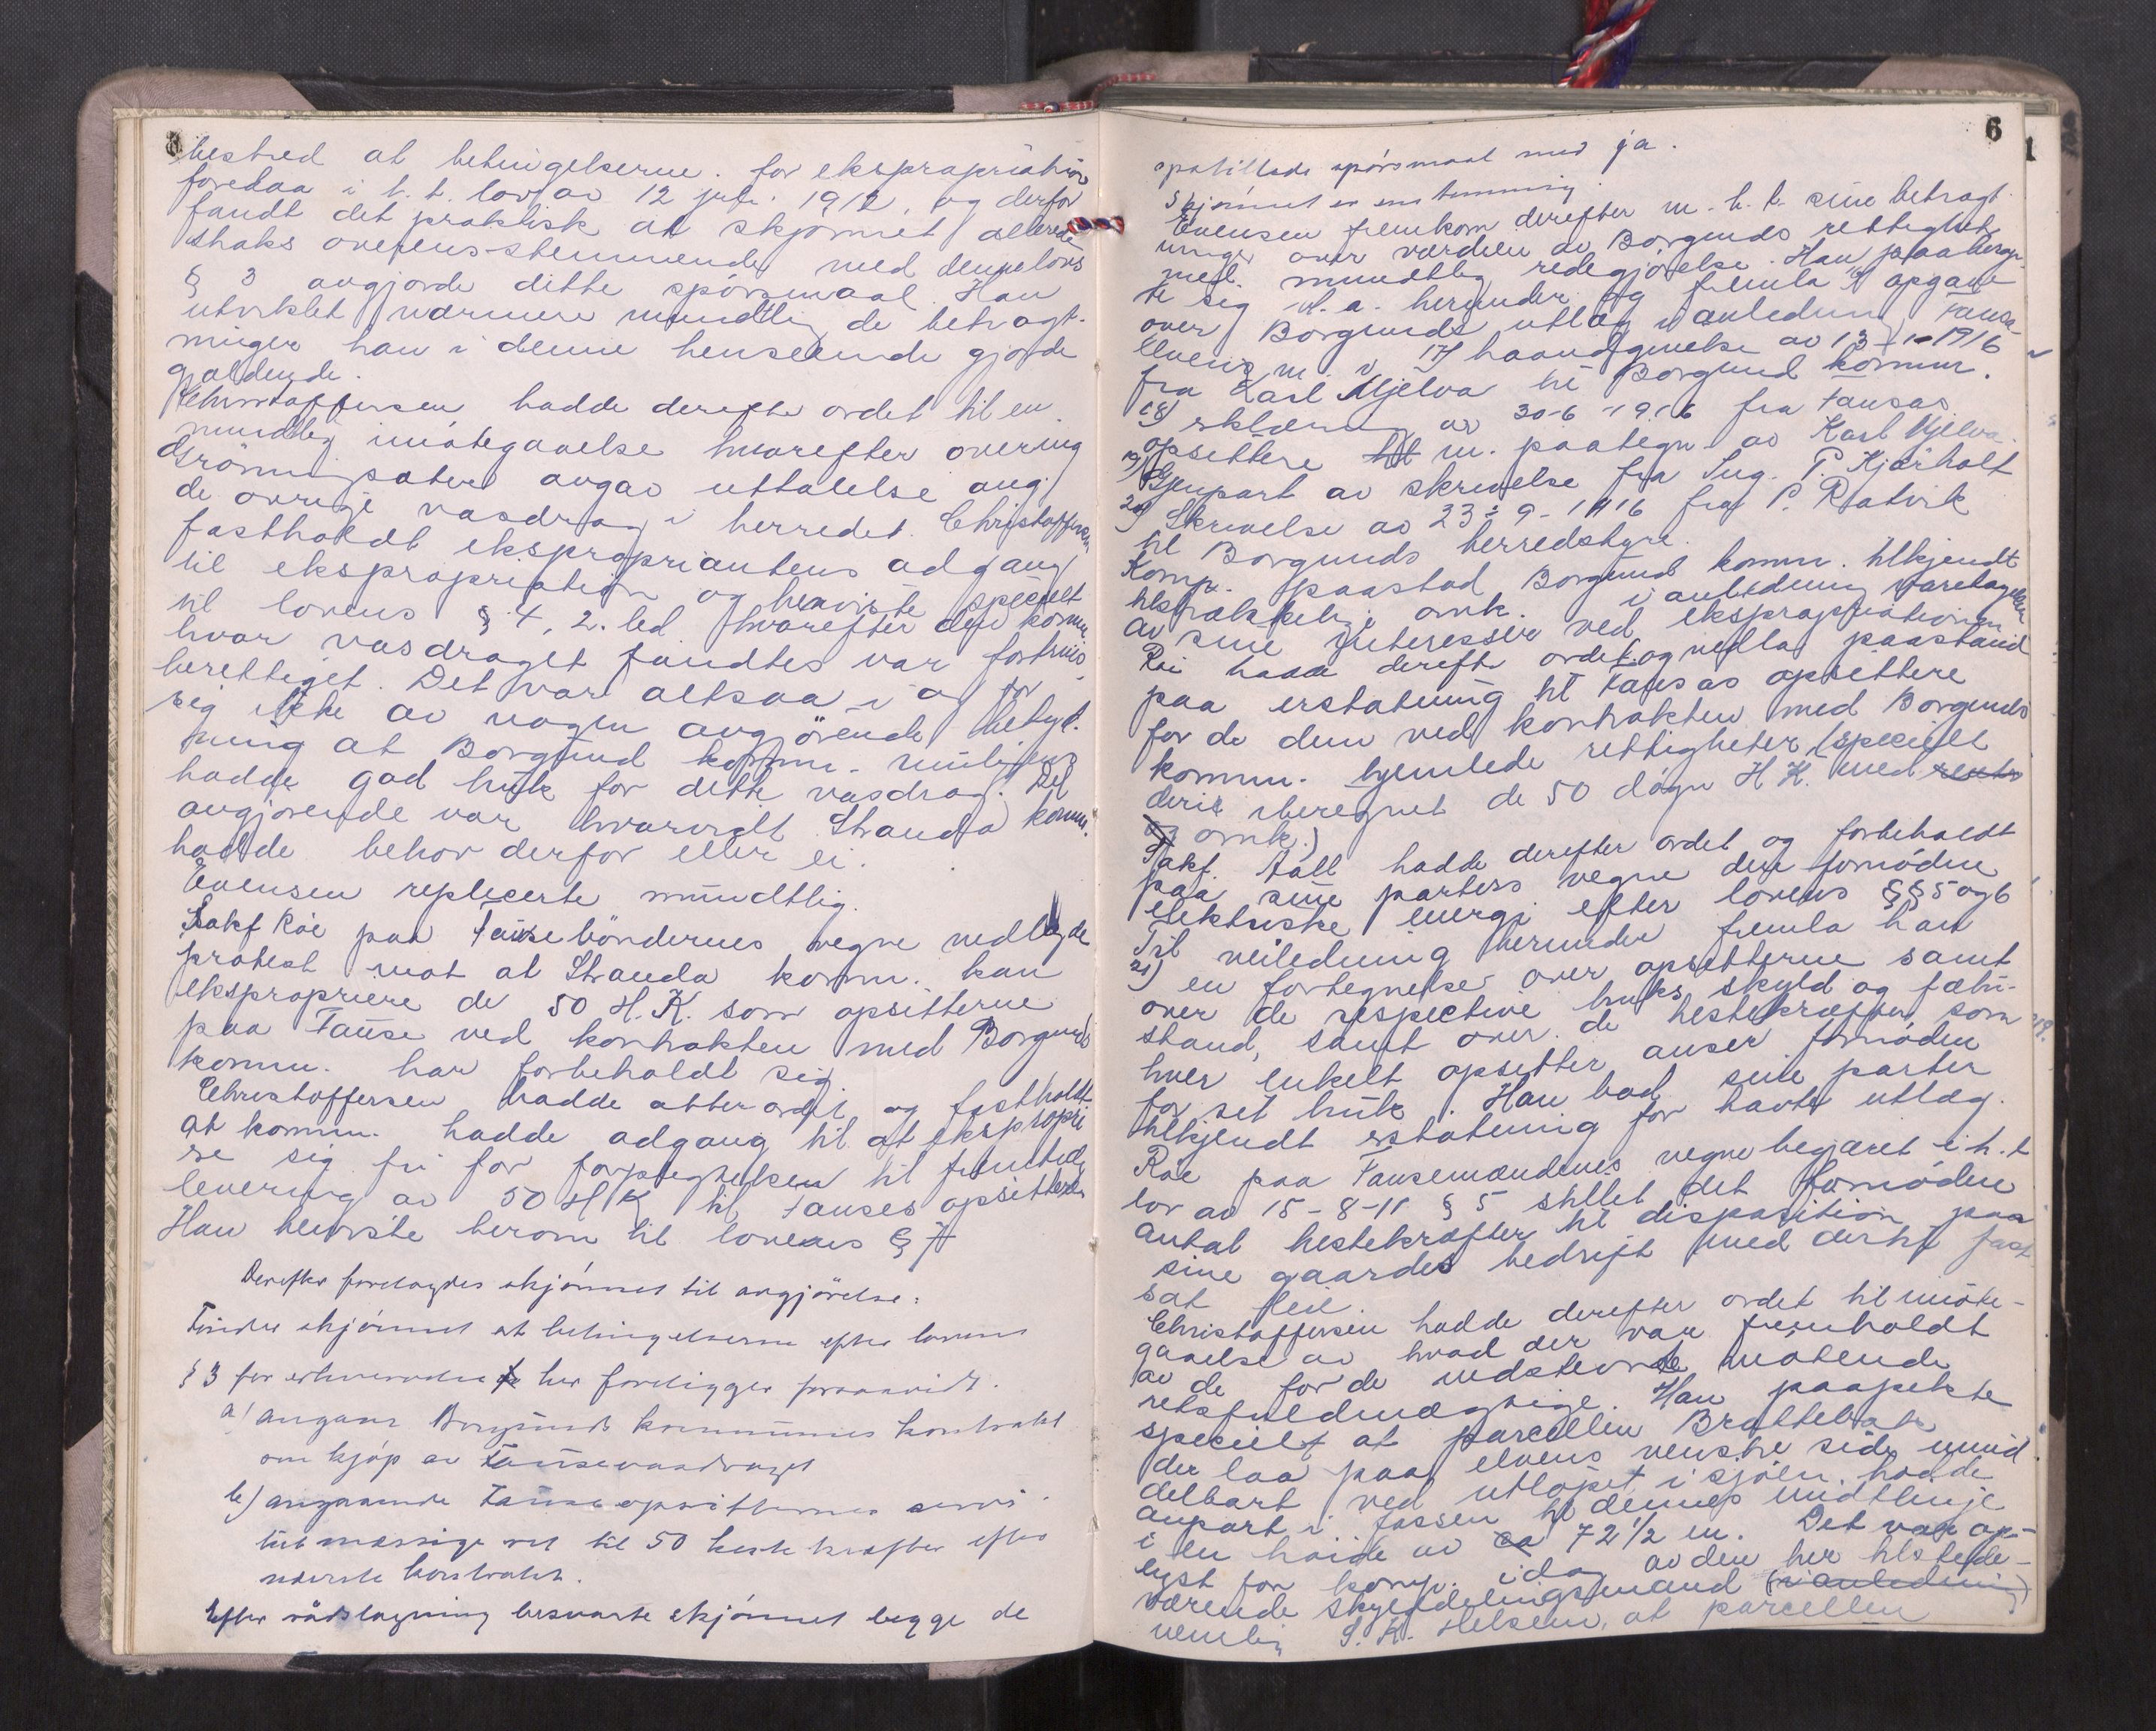 bestred at betingelserne for ekspropriation
forelaa i h. t. lov av 12 juli 1912, og derfor
fandt det praktisk at skjønnet allerede
straks overensstemmende med denne lovs
§ 3 avgjorde dette spørsmaal. Han
utviklet nærmere mundtlig de betragt-
ninger han i denne henseende gjorde
gjældende.
Christoffersen hadde derefter ordet til en
mundtlig imøtegaaelse hvorefter overing
Grønningsæter avgav uttalelse ang.
de øvrige vasdrag i herredet. Christoffersen
fastholdt ekspropriantens adgang
til ekspropriation og henviste specielt
til lovens § 4, 2. led hvorefter den komm.
hvor vasdraget fandtes var fortrins-
berettiget. Det var altsaa i og for
sig ikke av nogen avgjørende betyd-
ning at Borgund komm. muligens
hadde god bruk for dette vasdrag. Det
avgjørende var hvorvidt Stranda komm.
hadde behov derfor eller ei.
Evensen replicerte mundtlig.
Sakf Røe paa Fausebøndernes vegne nedlagde
protest mot at Stranda komm. kan
ekspropriere de 50 H. K. som opsitterne
paa Fause ved kontrakten med Borgund
komm. har forbeholdt sig.
Christoffersen hadde atter ordet og fastholdt
at komm. hadde adgang til at eksproprie
re sig fri for forpligtelsen til fremtidig
levering av 50 H K til Fauses opsittere
Han henviste herom til lovens § 7
Derefter foretoges skjønnet til avgjørelse:
Finder skjønnet at betingelserne efter lovens
§ 3 for erhvervelse her foreligger forsaavidt.
a) angaar Borgund kommunes kontrakt
om kjøp av Fausevasdraget
b) angaaende Fause opsitternes servi-
tutmæssige ret til 50 hestekræfter efter
nævnte kontrakt.
Efter rådslagning besvarte skjønnet begge de
6
opstillede spørsmaal med ja.
Skjønnet er enstemmig.
Evensen fremkom derefter m. h. t. sine betragt-
ninger over værdien av Borgunds rettigheter
med mundtlig redegjørelse. Han paaberop-
te sig bl. a. herunder og fremla 16 opgave
over Borgunds utlæg i anledning Fausa-
elven m. v. 17) haandgivelse av 13-10-1916
fra Karl Mjelva til Borgund komm.
18) erklæring av 30-6-1916 fra Fausas
opsittere m. paategn av Karl Mjelva.
19) Gjenpart av skrivelse fra Ing. P. Kjørholt
20) Skrivelse av 23-9-1916 fra P. Ratvik
til Borgunds herredstyre.
Komp. paastod Borgund komm. tilkjendt
tilstrækkelige omk. i anledning varetagelsen
av sine interesser ved ekspropriationen
Røe hadde derefter ordet og nedla paastand
paa erstatning til Fausas opsittere
for de dem ved kontrakten med Borgunds
komm. hjemlede rettigheter (specielt
deri iberegnet de 50 døgn H K. med
omk.)
Sakf. Aall hadde derefter ordet og forbeholdt
paa sine parters vegne den fornødne
elektriske energi efter lovens §§ 5 og 6
Til veiledning herunder fremla han
21) en fortegnelse over opsitterne samt
over de respective bruks skyld og folke-
stand, samt over de hestekræfter, som
hver enkelt opsitter anser fornøden
for sit bruk. Han bad sine parter
tilkjendt erstatning for havte utlæg.
Røe paa Fausemændenes vegne begjæret i h. t
lov av 18-8-11 § 5 stillet det fornødne
antal hestekræfter til disposition paa
sine gaardes bedrift med dertil fast
sat
Christoffersen hadde derefter ordet til imøte-
gaaelse av hvad der var fremholdt
av de for de indstevnte møtende
retsfuldmægtige. Han paapekte
specielt at parcellen Brattebak
der laa paa elvens venstre side umid
delbart ved utløpet i sjøen hadde
anpart i fossen til dennes midtlinje
i en høide av 72 1/2 m. Det var op-
lyst for komp. idag av den her tilstede-
værende skylddelingsmand (i anledning)
nemlig S. K. Helsem, at parcellen